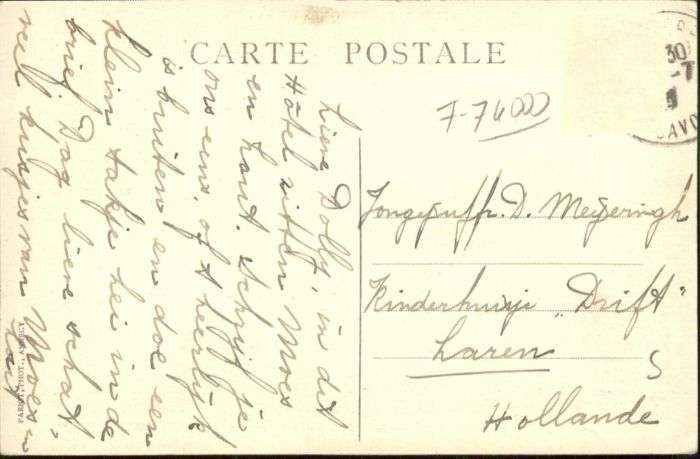 CARTE POSTALE
Lieve Dolly, in dit
Hôtel zitten Moes
en tant. Schrijf je
ons eens, of 't heerlijk
is buiten en doe een
klein takje hei in de
brief. Dag lieve schat
veel kusjes van Moes
7-76000
Jongejuffr. D. Meyeringh
Kinderhuisje "Drift"
Laren
S
Hollande
30
-7
AVO